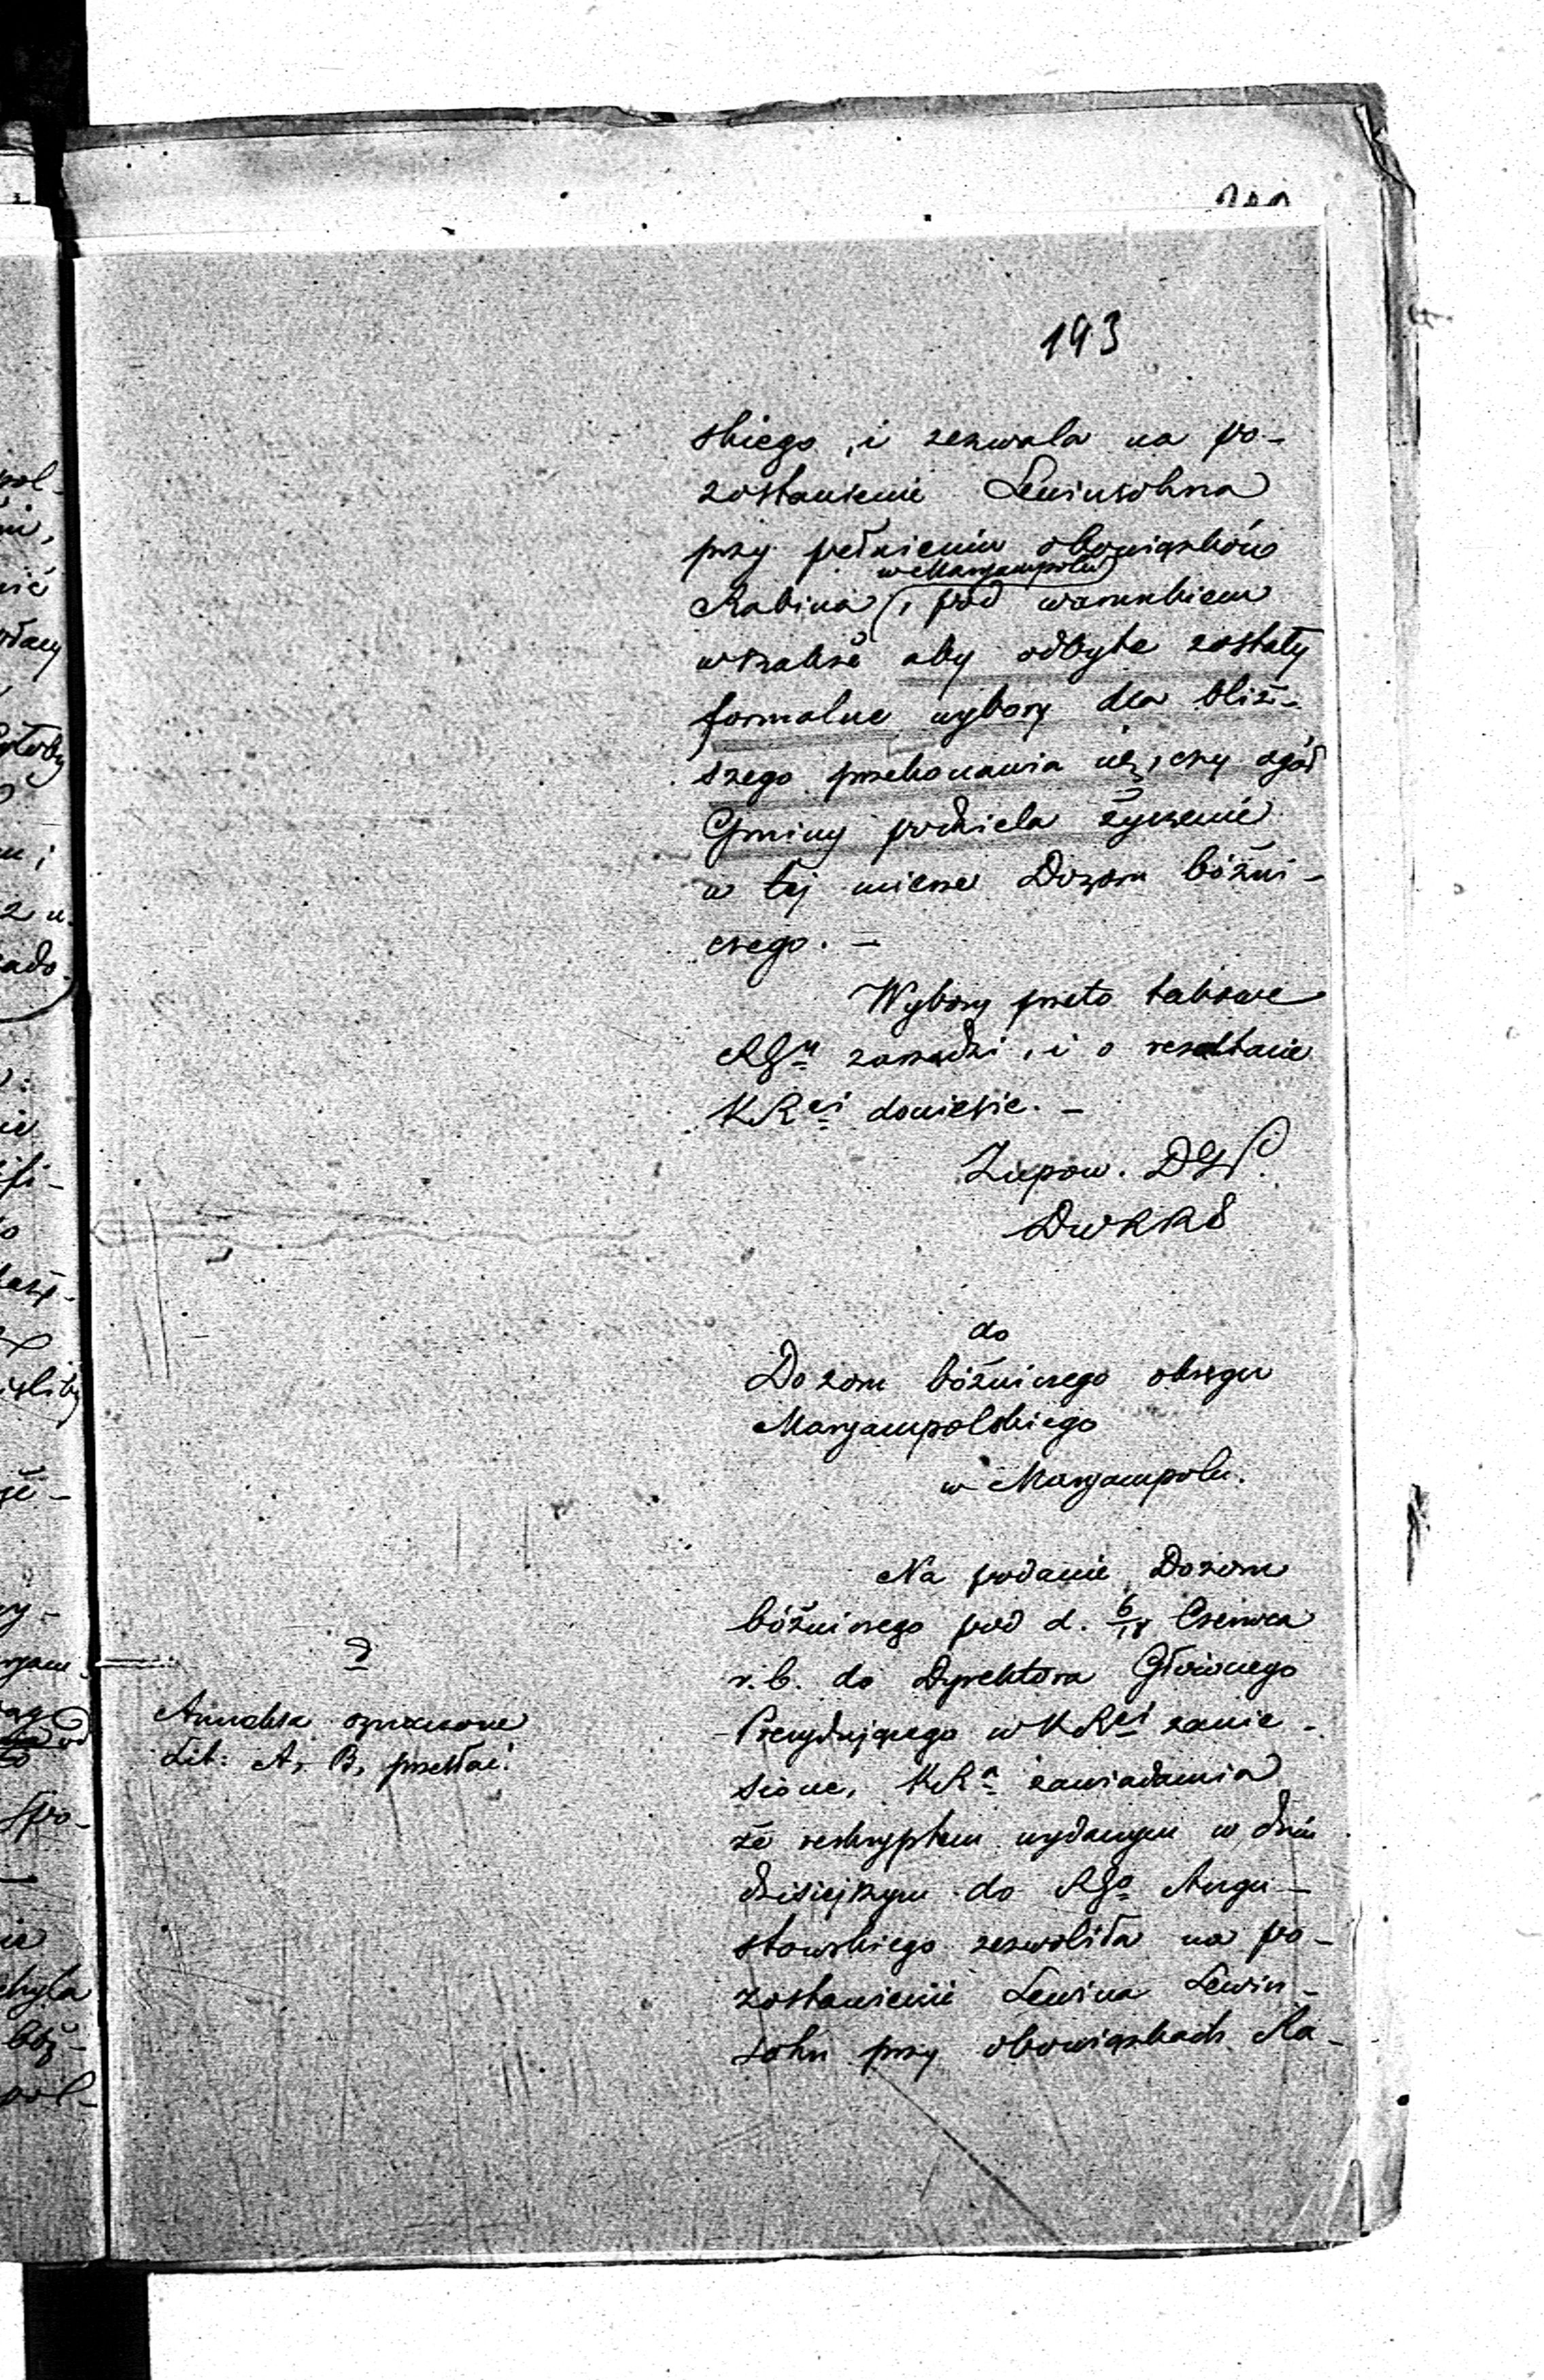 193
skiego, i zezwala na po-
zostawienie Lewinsohna
przy pełnieniu obowiązków
w Marjampolu
Rabina, pod warunkiem
wszakże aby odbyte zostały
formalne wybory dla bliż-
szego przekonania się, czy ogół
Gminy podziela życzenie
w tej mierze Dozoru bóżni-
czego. —
Wybory przeto takowe
RGu zarządzi, i o rezultacie
KRei doniesie. —
Zupow. DGP.
DwRRS
do
Dozoru bóżniczego okręgu
Marjampolskiego
w Marjampolu.
Na podanie Dozoru
bóżniczego pod d. 6/18 Czerwca
r.b. do Dyrektora Głównego
Prezydującego w KRei zanie-
sione, KRa zawiadamia
że reskryptem wydanym w dniu
dzisiejszym do RGo Augu-
stowskiego zezwoliła na po-
zostawienie Lewina Lewin-
sohn przy obowiązkach Ra-
Annexa oznaczone
Lit: A, B, przesłać.